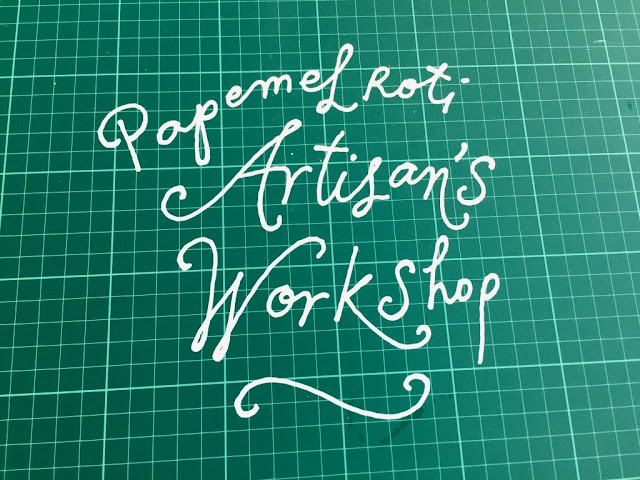 Papemelroti
Artisan's
Workshop